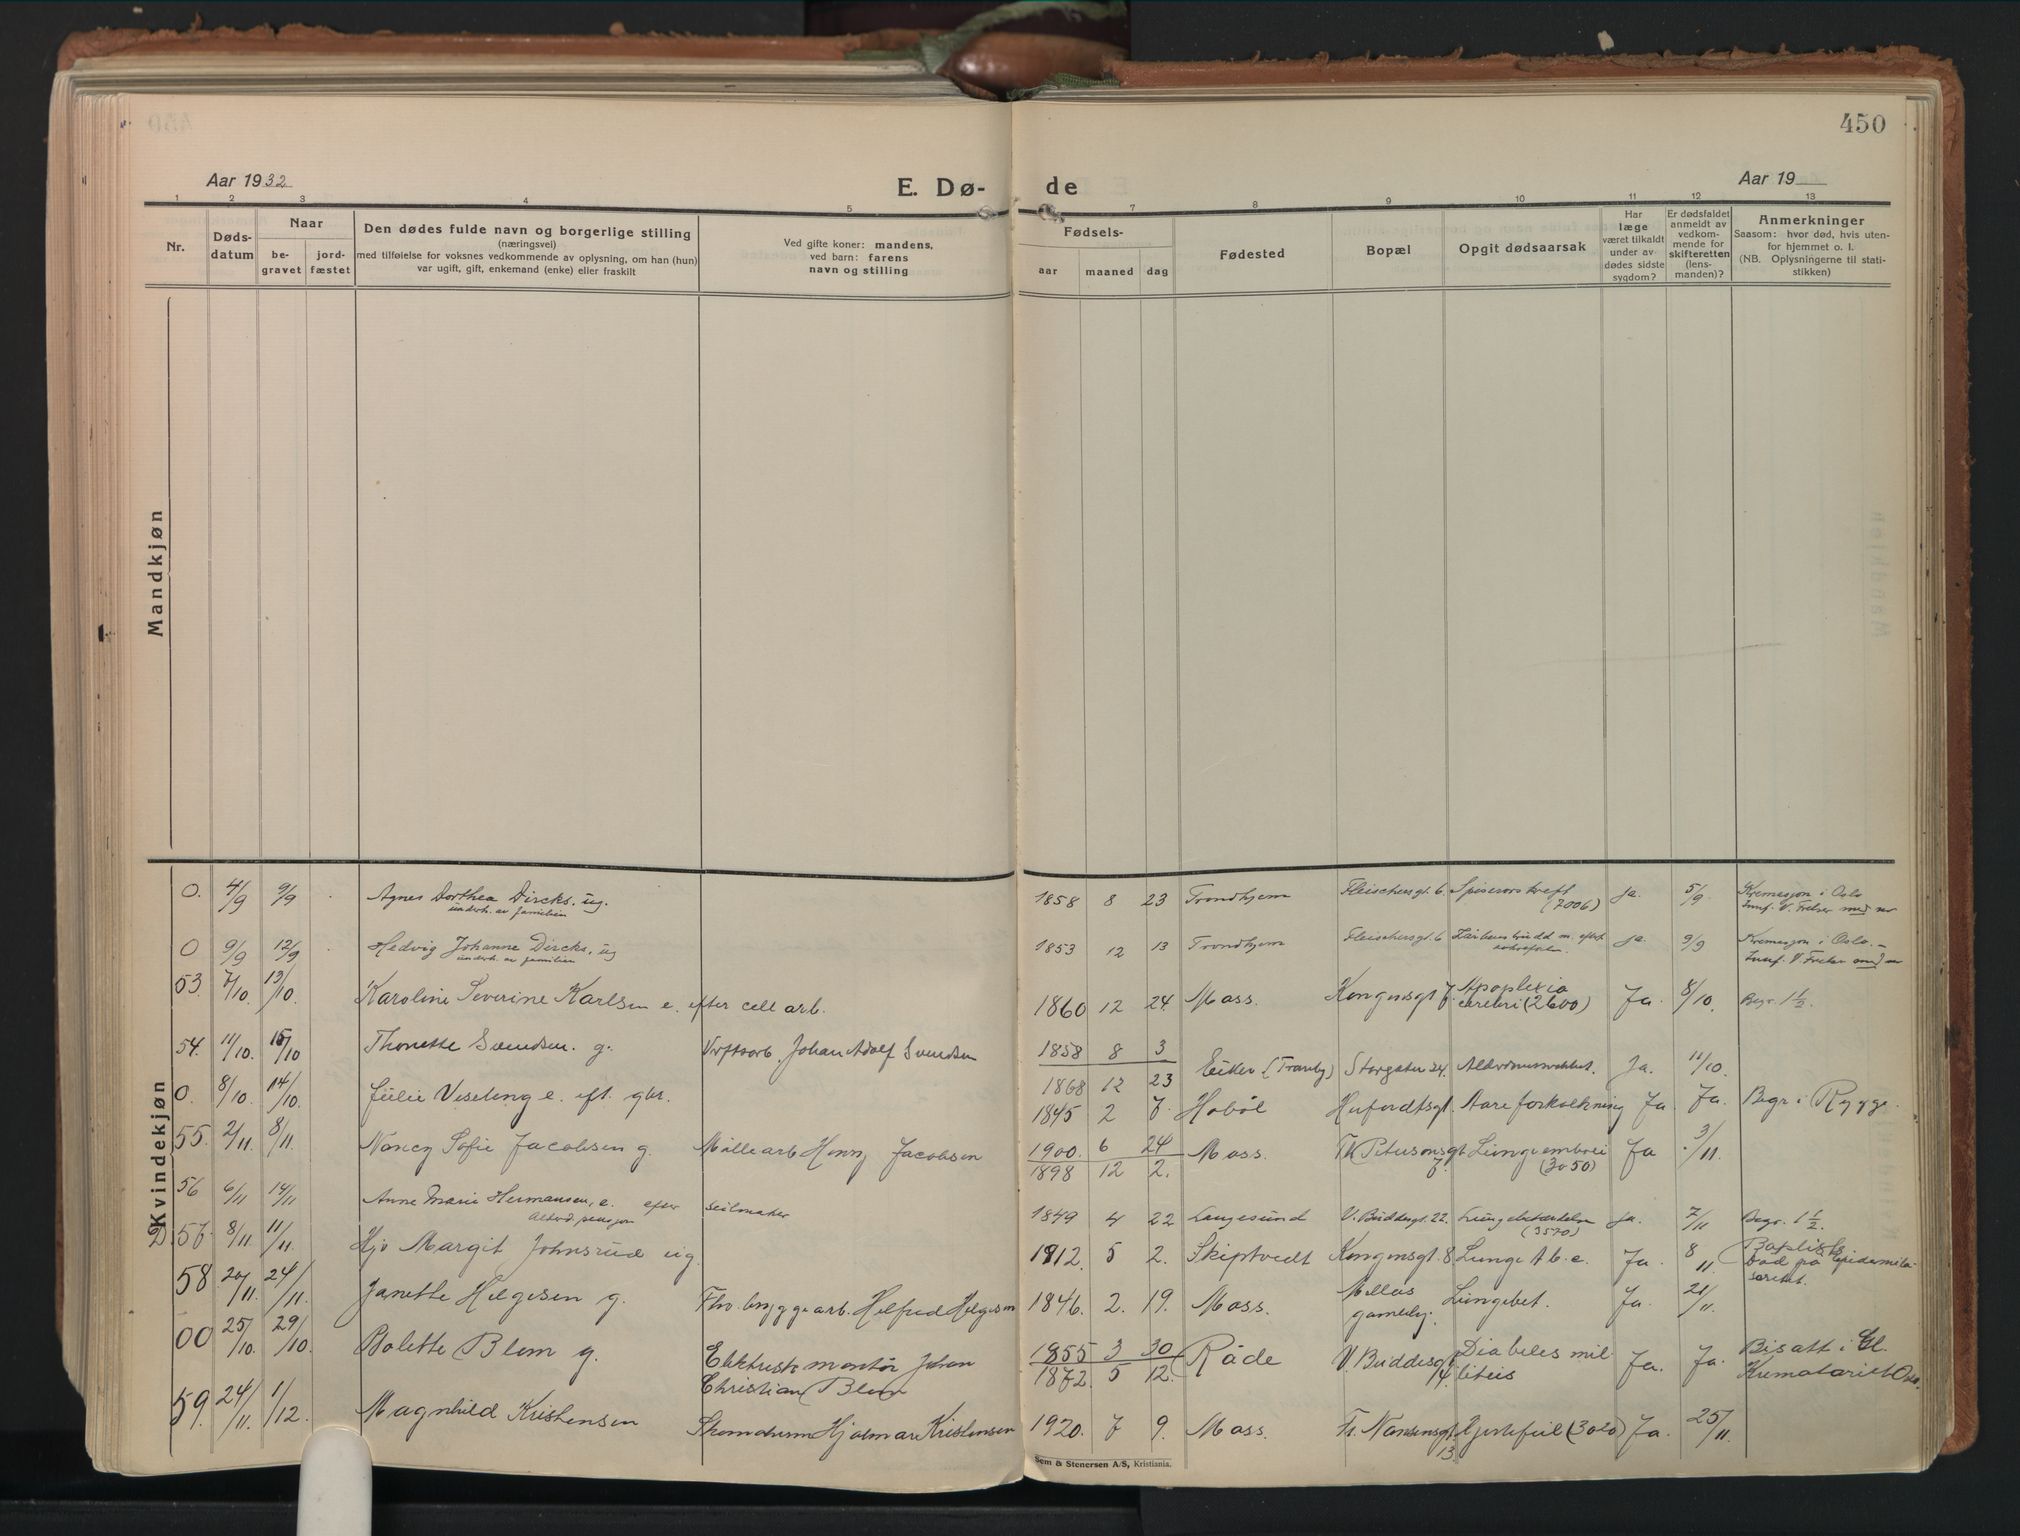 450
Aar 1932
E. Dø-
de
Aar 19
1 2 3 4 5 7 8 9 10 11 12 13
Nr.
Døds-
datum
Naar
be-
gravet
jord-
fæstet
Den dødes fulde navn og borgerlige stilling
(næringsvei)
med tilføielse for voksnes vedkommende av oplysning, om han (hun)
var ugift, gift, enkemand (enke) eller fraskilt
Ved gifte koner: mandens,
ved barn: farens
navn og stilling
Fødsels-
aar maaned dag
Fødested
Bopæl
Opgit dødsaarsak
Har
læge
været tilkaldt
under av-
dødes sidste
sygdom?
Er dødsfaldet
anmeldt av
vedkom-
mende for
skifteretten
(lens-
manden)?
Anmerkninger
Saasom: hvor død, hvis uten-
for hjemmet o. l.
(NB. Oplysningerne til stati-
stikken)
Mandkjøn
Kvindekjøn
0. 4/9 9/9 Agnes Dorthea Dircks. ug. 1858 8 23 Trondhjem Fleischersgt. 6. Spiserørskreft Ja. 5/9. Kremasjon i Oslo
underh. av familien (7006)
0 9/9 12/9 Hedvig Johanne Dircks. ug 1853 12 13 Trondhjem Fleischersgt. 6 Ja. 9/9 Kremasjon i Oslo.
underh. av familien
53. 7/10. 13/10. Karoline Severine Karlsen e. efter cell arb. 1860 12 24. Moss. Kongensgt 7. Apoplexia Ja. 8/10. Begr. 1 1/2.
cerebri (2600)
54. 11/10. 15/10 Thonette Svendsen. g. Verftsarb. Johan Adolf Svendsen 1858 8 3 Eiker (Tranby) Storgaten 24. Alderdomssvakhet. Ja. 11/10.
1868 12 23
0. 8/10. 14/10. Julie Veseteng e. eft. gbr. 1845 2 7. Hobøl Herfordtsgt. Aareforkalkning Ja Ja. Begr. i Rygge.
55. 2/11 8/11. Nancy Sofie Jacobsen g. Møllearb Henry Jacobsen 1900. 6 24 Moss. Th. Petersonsgt Lungeemboli Ja 3/11.
1898 12 2. 7. (3050)
56 6/11 14/11 Anne Marie Hermansen, e. efter seilmaker 1849 4 22 Langesund V. Buddesgt. 22. Lungebetændelse Ja. 7/11 Begr. 1 1/2.
Alderd. pensjon (3570)
D. 57. 8/11. 11/11. Hjø Margit Johnsrud ug. 1912. 5 2. Skiptvedt Kongensgt. 8 Lunge tbc. Ja. 8/11 Baptist
Død på Epidemila-
saretet.
58. 20/11. 24/11. Janette Helgesen g. Fhv. bryggearb. Helfred Helgesen 1846. 2. 19. Moss. Melløs Lungebet. Ja. 21/11.
gamlehj.
00 25/10. 29/10. Bolette Blom g. Elektristomontør Johan 1855 3 30 Råde V. Buddesgt Diabetes mel- Ja. Ja. Bisatt i Gl.
Christian Blom 1872. 5 12. 14. litus Krematoriet Oslo.
59. 24/11. 1/12. Magnhild Kristensen Skomakerm Hjalmar Kristensen 1920. 7 9. Moss. Fr. Nansensgt. Hjertefeil (3020) Ja. 25/11.
13.
Sem & Stenersen A/S, Kristiania.